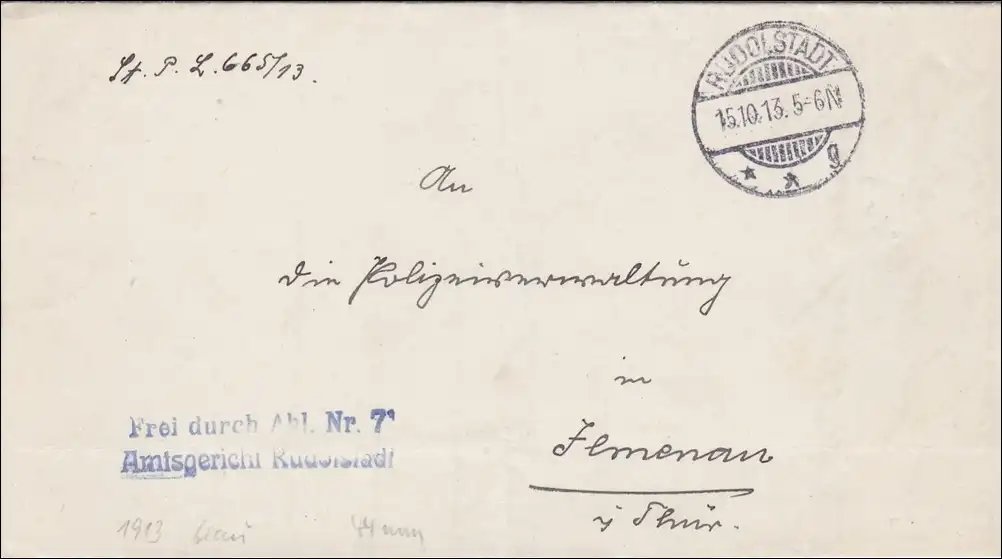 St. P. L. 665/13.
RUDOLSTADT
15.10.13. 5-6 N
g
An
die Polizeiverwaltung
in
Ilmenau
i/ Thür.
Frei durch Abl. Nr. 7
Amtsgericht Rudolstadt
1913 blau 44 mm